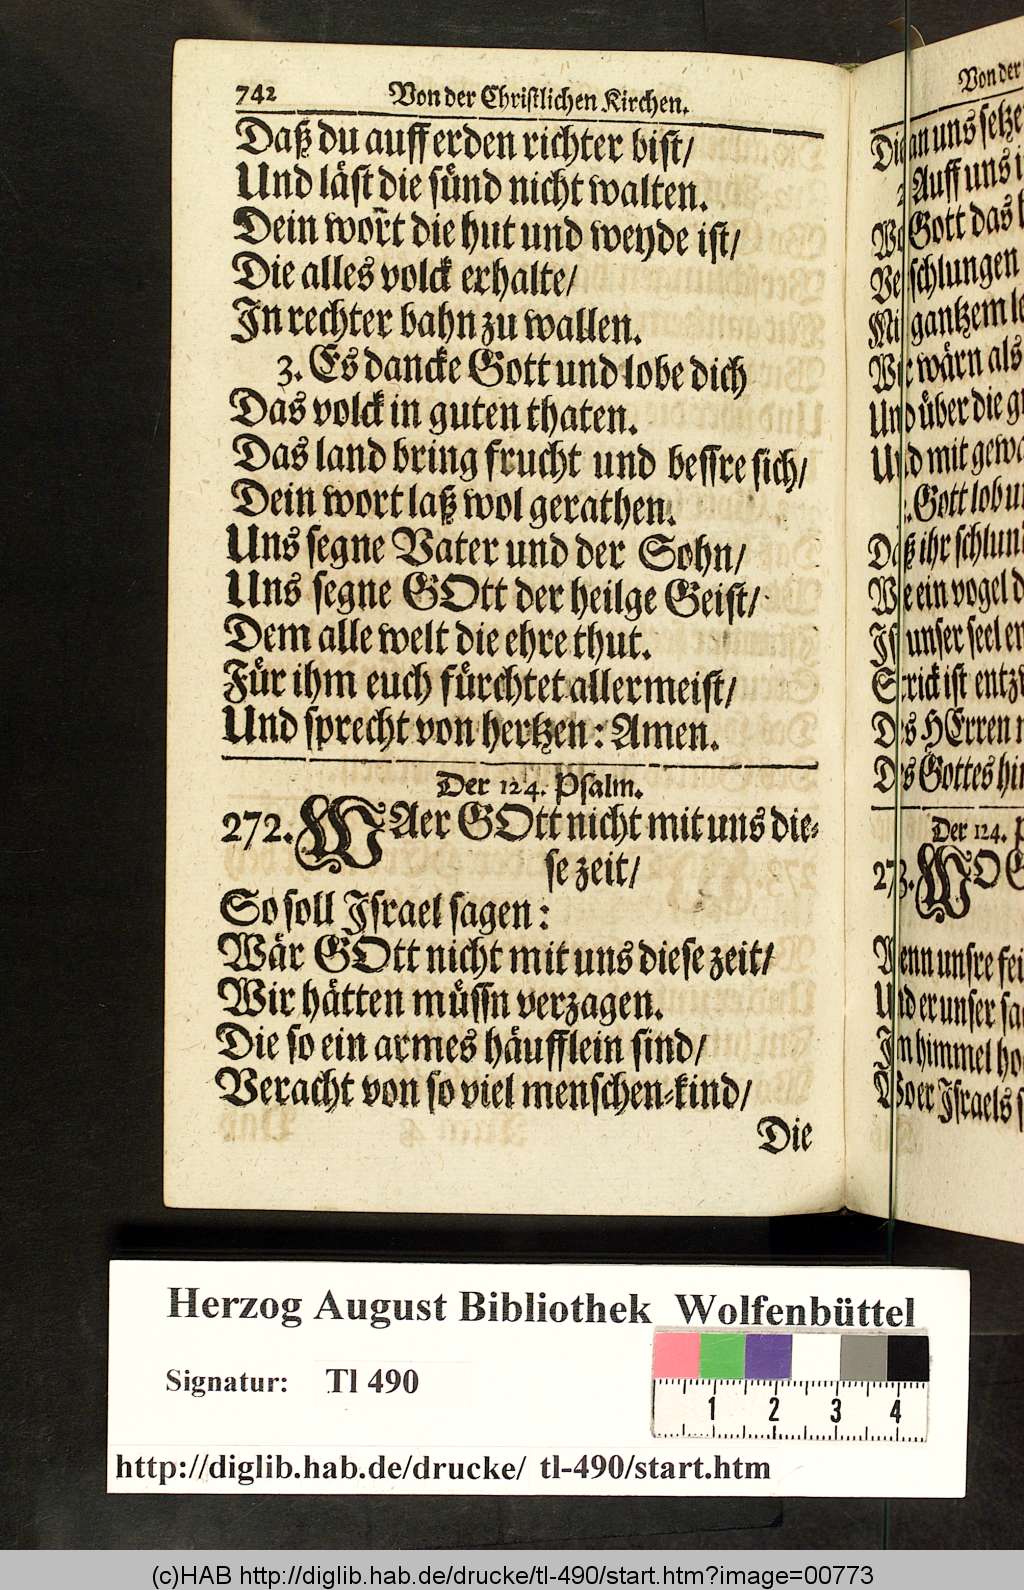 742
Von der Christlichen Kirchen.
Daß du auff erden richter bist/
Und läst die sünd nicht walten.
Dein wor̃t die hut und weyde ist/
Die alles volck erhalte/
In rechter bahn zu wallen.
3. Es dancke Gott und lobe dich
Das volck in guten thaten.
Das land bring frucht und bessre sich/
Dein wort laß wol gerathen.
Uns segne Vater und der Sohn/
Uns segne GOtt der heilge Geist/
Dem alle welt die ehre thut.
Für ihm euch fürchtet allermeist/
Und sprecht von hertzen: Amen.
Der 124. Psalm.
272. WAer GOtt nicht mit uns die-
se zeit/
So soll Israel sagen:
Wär GOtt nicht mit uns diese zeit/
Wir hätten müssn verzagen.
Die so ein armes häufflein sind/
Veracht von so viel menschen-kind/
Die
Von der
an uns setze
Auff uns
Gott das
schlungen
gantzem
wärn als
Und über die
Und mit
Gott lob
Daß ihr
Wie ein vogel
Ist unser seel
Strick ist
Des HErren
Des Gottes
Der 124.
273. WO
Wenn unsre
Und er unser
Im himmel
Wo er Israels
Herzog August Bibliothek Wolfenbüttel
Signatur: Tl 490
1 2 3 4
http://diglib.hab.de/drucke/ tl-490/start.htm
(c)HAB http://diglib.hab.de/drucke/tl-490/start.htm?image=00773